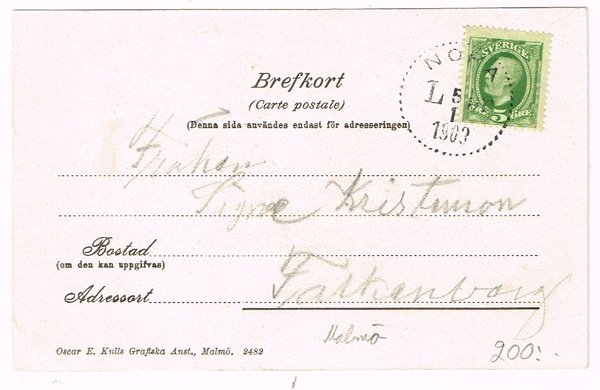 SVERIGE
5 ÖRE
NORA
L
5
1
1903
Brefkort
(Carte postale)
(Denna sida användes endast för adresseringen)
Fröken
Signe Kristenson
Bostad
(om den kan uppgifvas)
Falkenberg
Adressort
Malmö
Oscar E. Kulls Grafiska Anst., Malmö. 2482
200:-